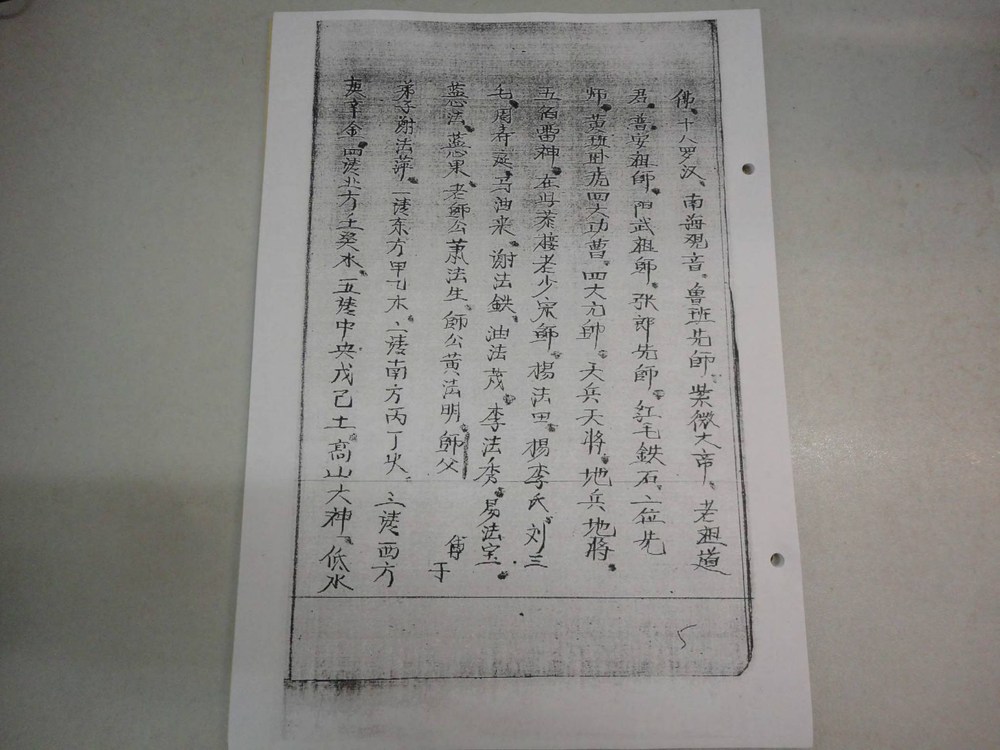 佛、十八罗汉、南海观音。鲁班先师、紫微大帝、老祖道
君。普安祖師。門武祖師。张郎先師。紅毛鉄石二位先
师。黄班卧虎四大功曹。四大元帅。天兵天將。地兵地將。
五伯雷神。在坛茶楼老少宗師。楊法田。楊李氏。刘三
毛。周寿廷。马油来。謝法鉄。油法茂。李法秀。易法宝。
法。果。老師公萧法生。師公黄法明。師父 傅于
弟子謝法萍。一 东方甲乙木。二 南方丙丁火 三 西方
庚辛金。四 北方壬癸水。五 中央戊己土。高山大神。低水
5